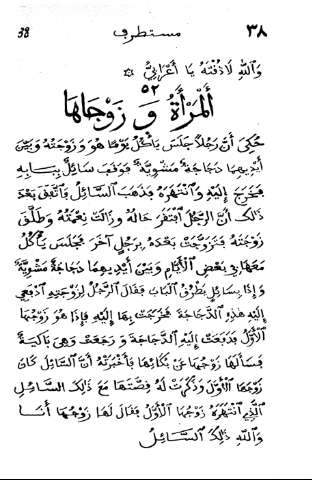 ٣٨ مستطرف 38
وَاللّٰهِ لَاذُقْتَهُ يَا أَعْرَابِيُّ
٥٢
أَلْمَرْأَةُ وَ زَوْجَاهَا
حُكِىَ أَنَّ رَجُلًا جَلَسَ يَأْكُلُ يَوْمًا هُوَ وَزَوْجَتُهُ وَبَيْنَ
أَيْدِيهِمَا دَجَاجَةٌ مَشْوِيَّةٌ فَوَقَفَ سَائِلٌ بِبَابِهِ
فَخَرَجَ إِلَيْهِ وَانْتَهَرَهُ فَذَهَبَ السَّائِلُ فَاتَّفَقَ بَعْدَ
ذٰلِكَ أَنَّ الرَّجُلَ افْتَقَرَ حَالُهُ وَزَالَتْ نِعْمَتُهُ وَطَلَّقَ
زَوْجَتَهُ فَتَزَوَّجَتْ بَعْدَهُ بِرَجُلٍ آخَرَ فَجَلَسَ يَأْكُلُ
مَعَهَا فِي بَعْضِ الْأَيَّامِ وَبَيْنَ أَيْدِيهِمَا دَجَاجَةٌ مَشْوِيَّةٌ
وَإِذَا بِسَائِلٍ يَطْرُقُ الْبَابَ فَقَالَ الرَّجُلُ لِزَوْجَتِهِ ادْفَعِي
إِلَيْهِ هٰذِهِ الدَّجَاجَةَ فَخَرَجَتْ بِهَا إِلَيْهِ فَإِذَا هُوَ زَوْجُهَا
الْأَوَّلُ فَدَفَعَتْ إِلَيْهِ الدَّجَاجَةَ وَرَجَعَتْ وَهِيَ بَاكِيَةٌ
فَسَأَلَهَا زَوْجُهَا عَنْ بُكَائِهَا فَأَخْبَرَتْهُ أَنَّ السَّائِلَ كَانَ
زَوْجَهَا الْأَوَّلَ وَذَكَرَتْ لَهُ قِصَّتَهَا مَعَ ذٰلِكَ السَّائِلِ
الَّذِي انْتَهَرَهُ زَوْجُهَا الْأَوَّلُ فَقَالَ لَهَا زَوْجُهَا أَنَا
وَاللّٰهِ ذٰلِكَ السَّائِلُ